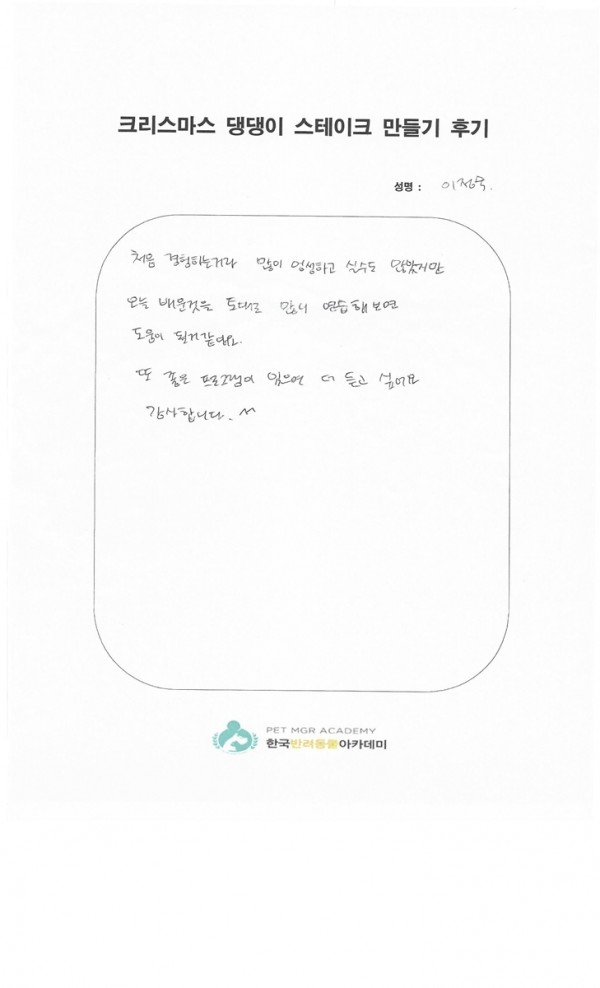 크리스마스 댕댕이 스테이크 만들기 후기
성명 : 이정욱.
처음 경험하는거라 많이 엉성하고 실수도 많았지만
오늘 배운것을 토대로 많이 연습해보면
도움이 될거같아요.
또 좋은 프로그램이 있으면 더 듣고 싶어요
감사합니다. ^^
PET MGR ACADEMY
한국반려동물아카데미